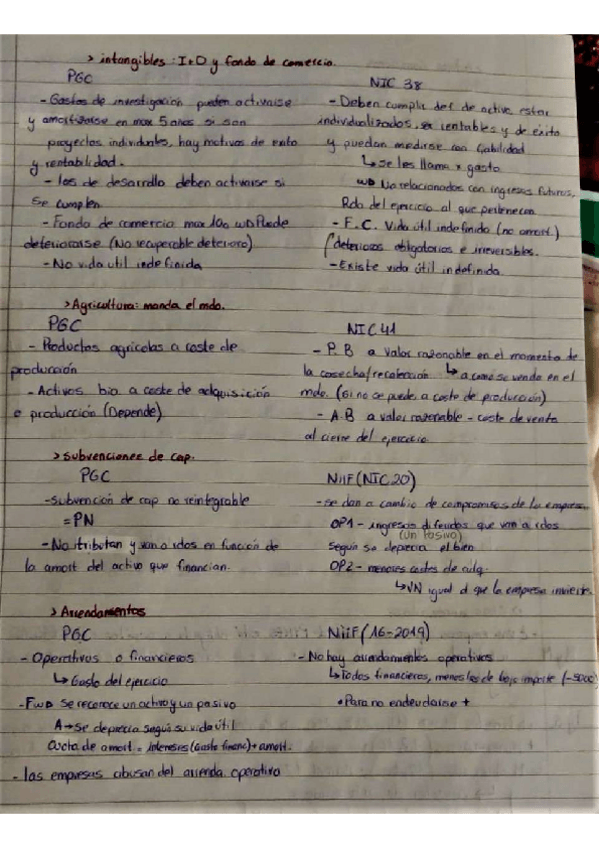 > intangibles: I+D y fondo de comercio.
PGC
- Gastos de investigación pueden activarse
y amortizarse en max 5 años si son
proyectos individuales, hay motivos de exito
y rentabilidad.
- los de desarrollo deben activarse si
se cumplen.
- Fondo de comercio max 10a Puede
deteriorarse (No recuperable deterioro)
- No vida util indefinida
NIC 38
- Deben cumplir def de activo, estar
individualizados, ser rentables y de éxito
y puedan medirse con fiabilidad
↳ se les llama x gasto
No relacionados con ingresos futuros,
Rdo del ejercicio al que pertenecen.
- F.C. Vida útil indefinida (no amort.)
deterioros obligatorios e irreversibles.
- Existe vida útil indefinida
> Agricultura: manda el mdo.
PGC
- Productos agricolas a coste de
producción
- Activos bio. a coste de adquisición
o producción (Depende)
NIC 41
- P.B a valor razonable en el momento de
la cosecha/recolección ↳ a como se vende en el
mdo. (si no se puede a coste de producción)
- A.B a valor razonable - coste de venta
al cierre del ejercicio
> Subvenciones de cap.
PGC
- Subvención de cap no reintegrable
= PN
- No tributan y van a rdos en función de
la amort del activo que financian.
NIIF (NIC 20)
- Se dan a cambio de compromisos de la empresa
OP1 - ingresos diferidos que van a rdos
(Un Pasivo)
según se deprecia el bien
OP2 - menores costes de adq.
↳ VN igual a que la empresa invierte.
> Arrendamientos
PGC
- Operativos o financieros
↳ Gasto del ejercicio
- F Se reconoce un activo y un pasivo
A → Se deprecia según su vida útil
Cuota de amort = intereses (Gasto financ) + amort.
- las empresas abusan del arrenda. operativo
NIIF (16-2019)
- No hay arrendamientos operativos
↳ Todos financieros, menos los de bajo importe (-5000)
• Para no endeudarse +